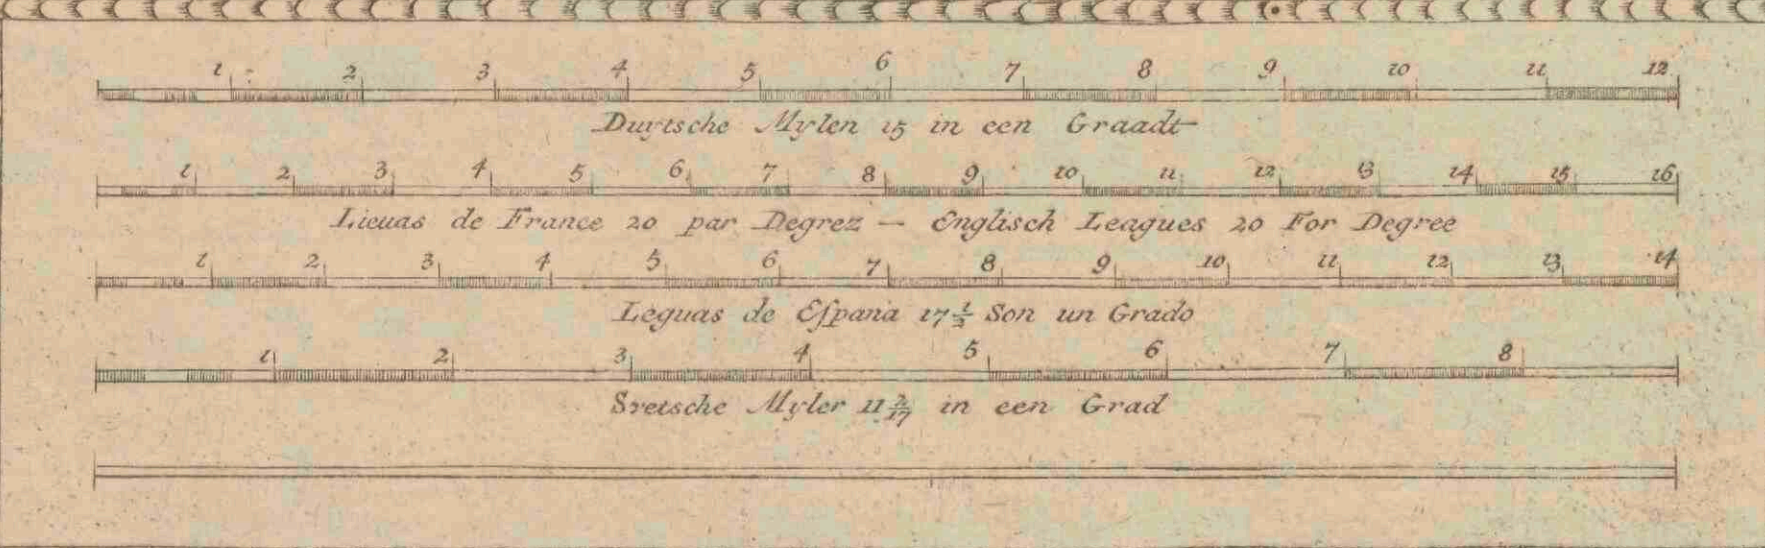 1 2 3 4 5 6 7 8 9 10 11 12
Duytsche Mylen 15 in een Graadt
1 2 3 4 5 6 7 8 9 10 11 12 13 14 15 16
Lieuas de France 20 par Degrez — Englisch Leagues 20 For Degree
1 2 3 4 5 6 7 8 9 10 11 12 13 14
Leguas de Eſpana 17½ Son un Grado
1 2 3 4 5 6 7 8
Svetsche Myler 11 2/17 in een Grad